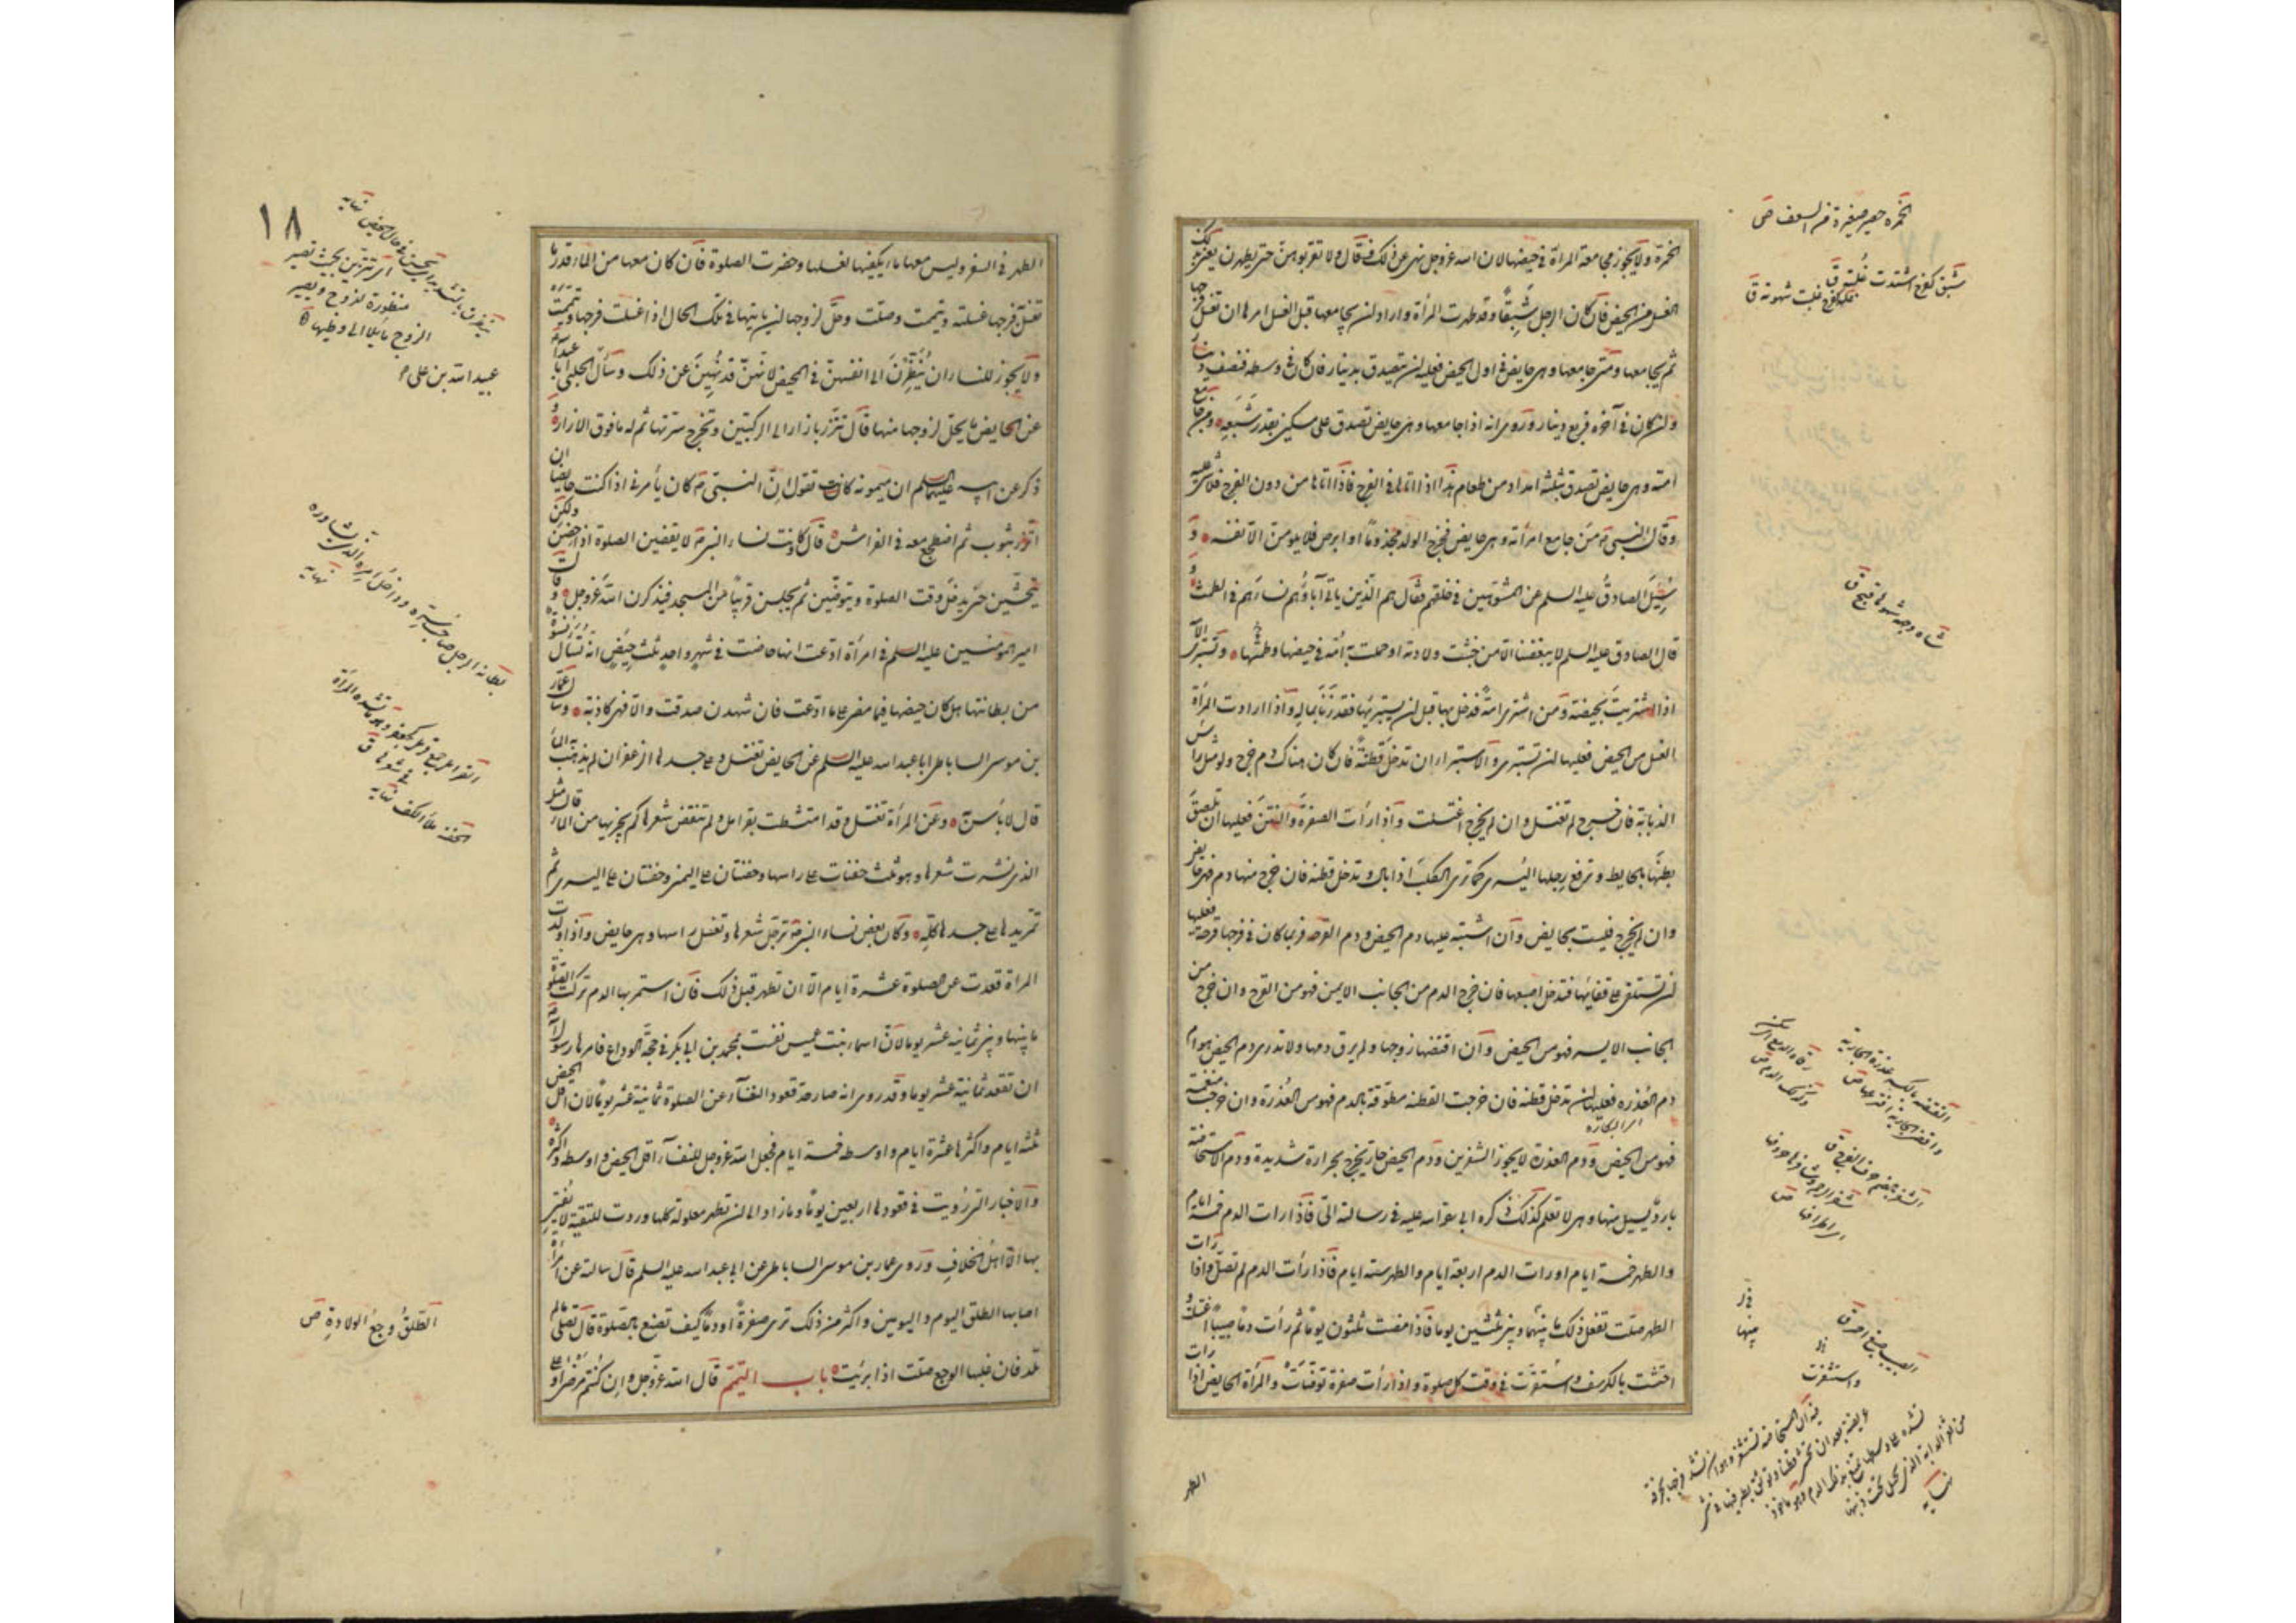 الخمرة ولا يجوز مجامعة المرأة في حيضها لان الله عز وجل نهى عن ذلك فقال ولا تقربوهن حتى يطهرن يعني بذلك
الغسل من الحيض فان كان الرجل شبقا وقد طهرت المرأة واراد ان يجامعها قبل الغسل امرها ان تغسل فرجها
ثم يجامعها ومتى جامعها وهي حايض في اول الحيض فعليه ان يتصدق بدينار فان كان في وسطه فنصف دينار
وان كان في آخره فربع دينار وروى انه اذا جامعها وهي حايض تصدق على مسكين بقدر شبعه ومن جامع
امته وهي حايض تصدق بثلثة امداد من طعام هذا اذا اتاها في الفرج فاذا اتاها من دون الفرج فلا شيء عليه
وقال النبي ص من جامع امرأته وهي حايض فخرج الولد مجذوما او ابرص فلا يلومن الا نفسه و
سئل الصادق عليه السلم عن المشوهين في خلقهم فقال هم الذين ياتي آباؤهم نساءهم في الطمث و
قال الصادق عليه السلم لا يبغضنا الا من خبثت ولادته او حملت به امه في حيضها وتستبرئ الامة
اذا اشتريت بحيضة ومن اشترى امة فدخل بها قبل ان يستبرئها فقد زنى بماله واذا ارادت المرأة
الغسل من الحيض فعليها ان تستبرئ والاستبراء ان تدخل قطنة فان كان هناك دم خرج ولو مثل راس
الذباب فان خرج لم تغتسل وان لم يخرج اغتسلت واذا رأت الصفرة والنتن فعليها ان تلصق
بطنها بالحايط وترفع رجلها اليسرى كما ترى الكلب اذا بال وتدخل قطنة فان خرج منها دم فهي حايض
وان لم يخرج فليست بحايض وان اشتبه عليها دم الحيض ودم القرحة فربما كان في فرجها قرحة فعليها
ان تستلقي على قفائها وتدخل اصبعها فان خرج الدم من الجانب الايمن فهو من القرح وان خرج من
الجانب الايسر فهو من الحيض وان اقتضها زوجها ولم يرق دمها ولا تدري دم الحيض هو ام
دم العذرة فعليها ان تدخل قطنة فان خرجت القطنة مطوقة بالدم فهو من العذرة وان خرجت منغمسة
فهو من الحيض ودم العذرة لا يجوز الشفرين ودم الحيض حار يخرج بحرارة شديدة ودم الاستحاضة
بارد يسيل منها وهي لا تعلم كذلك ذكره ابي رضي الله عليه في رسالته الي فاذا رات الدم خمسة ايام
والطهر خمسة ايام او رات الدم اربعة ايام والطهر ستة ايام فاذا رأت الدم لم تصل واذا رات
الطهر صلت تفعل ذلك ما بينها وبين ثلثين يوما فاذا مضت ثلثون يوما ثم رأت دما صبيبا اغتسلت و
احتشت بالكرسف واستثفرت في وقت كل صلوة واذا رأت صفرة توضأت والمرأة الحايض اذا رات
الطهر
الخمرة حصير صغيرة من السعف ص
شبق كفرح اشتدت غلمته ق
شاه وجهه شوها قبح ق
واستثفرت
نهايه
١٨
الطهر في السفر وليس معها ماء يكفيها لغسلها وحضرت الصلوة فان كان معها من الماء قدر ما
تغسل فرجها غسلته وتيممت وصلت وحل لزوجها ان ياتيها في تلك الحال اذا غسلت فرجها وتيممت
ولا يجوز للنساء ان ينظرن الى انفسهن في المحيض لانهن قد نهين عن ذلك وسأل الحلبي ابا عبد الله
عن الحايض ما يحل لزوجها منها قال تتزر بازار الى الركبتين وتخرج سرتها ثم له ما فوق الازار و
ذكر عن ابيه عليهما السلم ان ميمونة كانت تقول ان النبي ص كان يأمرني اذا كنت حايضا ان
اتزر بثوب ثم اضطجع معه في الفراش قال وكانت نساء النبي ص لا يقضين الصلوة اذا حضن ولكن
يتحشين حين يدخل وقت الصلوة ويتوضين ثم يجلسن قريبا من المسجد فيذكرن الله عز وجل وقال
امير المؤمنين عليه السلم في امرأة ادعت انها حاضت في شهر واحد ثلث حيض انه تسأل نسوة
من بطانتها هل كان حيضها فيما مضى على ما ادعت فان شهدن صدقت والا فهي كاذبة وسأل عمار
بن موسى الساباطي ابا عبد الله عليه السلم عن الحايض تغتسل وعلى جسدها الزعفران لم يذهب به الماء
قال لا بأس به وعن المرأة تغتسل وقد امتشطت بقرامل ولم تنقض شعرها كم يجزيها من الماء قال مثل
الذي نشرت شعرها وهو ثلث حفنات على راسها وحفنتان على اليمنى وحفنتان على اليسرى ثم
تمر يدها على جسدها كله وكان بعض نساء النبي ص ترجل شعرها وتغسل راسها وهي حايض واذا ولدت
المرأة قعدت عن الصلوة عشرة ايام الا ان تطهر قبل ذلك فان استمر بها الدم تركت الصلوة
ما بينها وبين ثمانية عشر يوما لان اسماء بنت عميس نفست بمحمد بن ابي بكر في حجة الوداع فامرها رسول الله
ان تقعد ثمانية عشر يوما وقد روى انه صار حد قعود النفساء عن الصلوة ثمانية عشر يوما لان اقل الحيض
ثلثة ايام واكثرها عشرة ايام واوسطه خمسة ايام فجعل الله عز وجل للنفساء اقل الحيض واوسطه واكثره
والاخبار التي رويت في قعودها اربعين يوما وما زاد الى ان تطهر معلولة كلها وردت للتقية لا يفتي
بها الا اهل الخلاف وروى عمار بن موسى الساباطي عن ابي عبد الله عليه السلم قال سالته عن امرأة
اصابها الطلق اليوم واليومين واكثر من ذلك ترى صفرة او دما كيف تصنع بالصلوة قال تصلي ما لم
تلد فان غلبها الوجع صلت اذا برئت باب التيمم قال الله عز وجل وان كنتم مرضى او على
منظورة للزوج ويصير
الزوج مائلا الى وطيها
عبيد الله بن علي
نهايه
الحفنة ملأ الكف نهايه
الطلق وجع الولادة ص